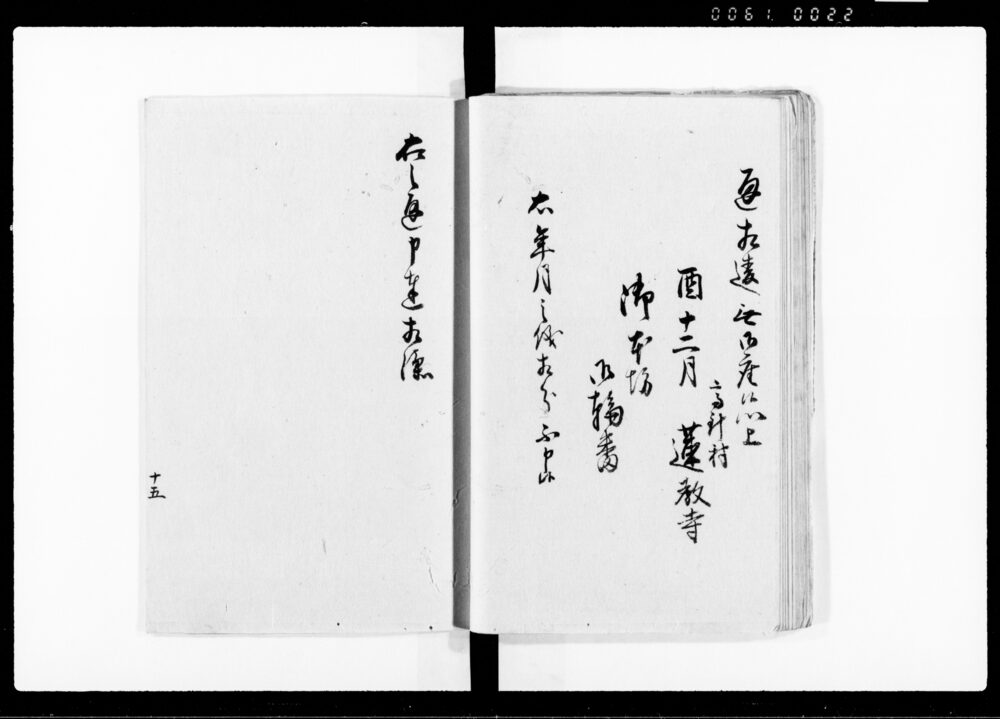 0061 0022
通相違無御座候以上
高針村
酉十二月 蓮教寺
御本坊
御輪番
右年月之儀相分不申候
右之通申達相済
十五